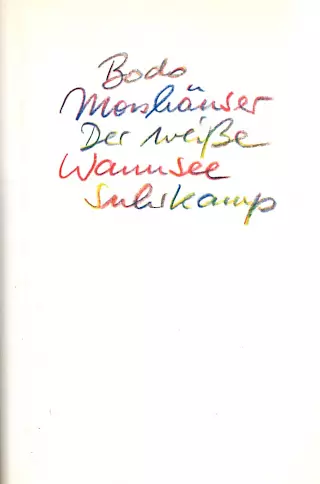 Bodo
Morshäuser
Der weiße
Wannsee
Suhrkamp